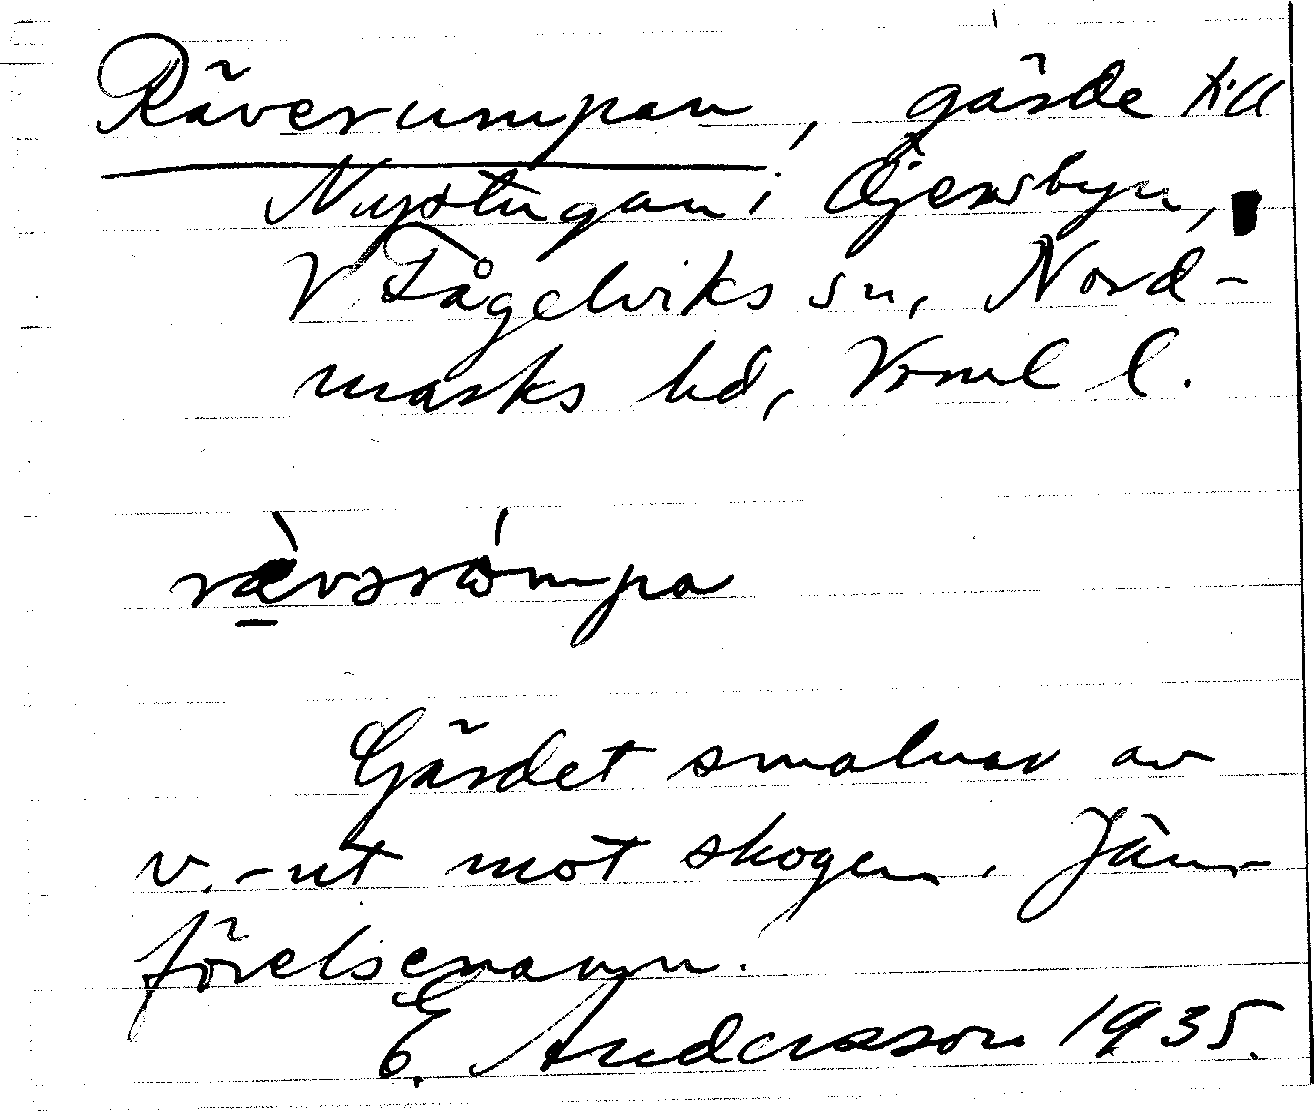 Räverumpan, gärde till
Nystugan i Öjensbyn,
V Fågelviks sn, Nord-
marks hd, Vrml l.
ræ̀vərómpa
Gärdet smalnar av
v.-ut mot skogen. Jäm-
förelsenamn.
E. Andersson 1935.